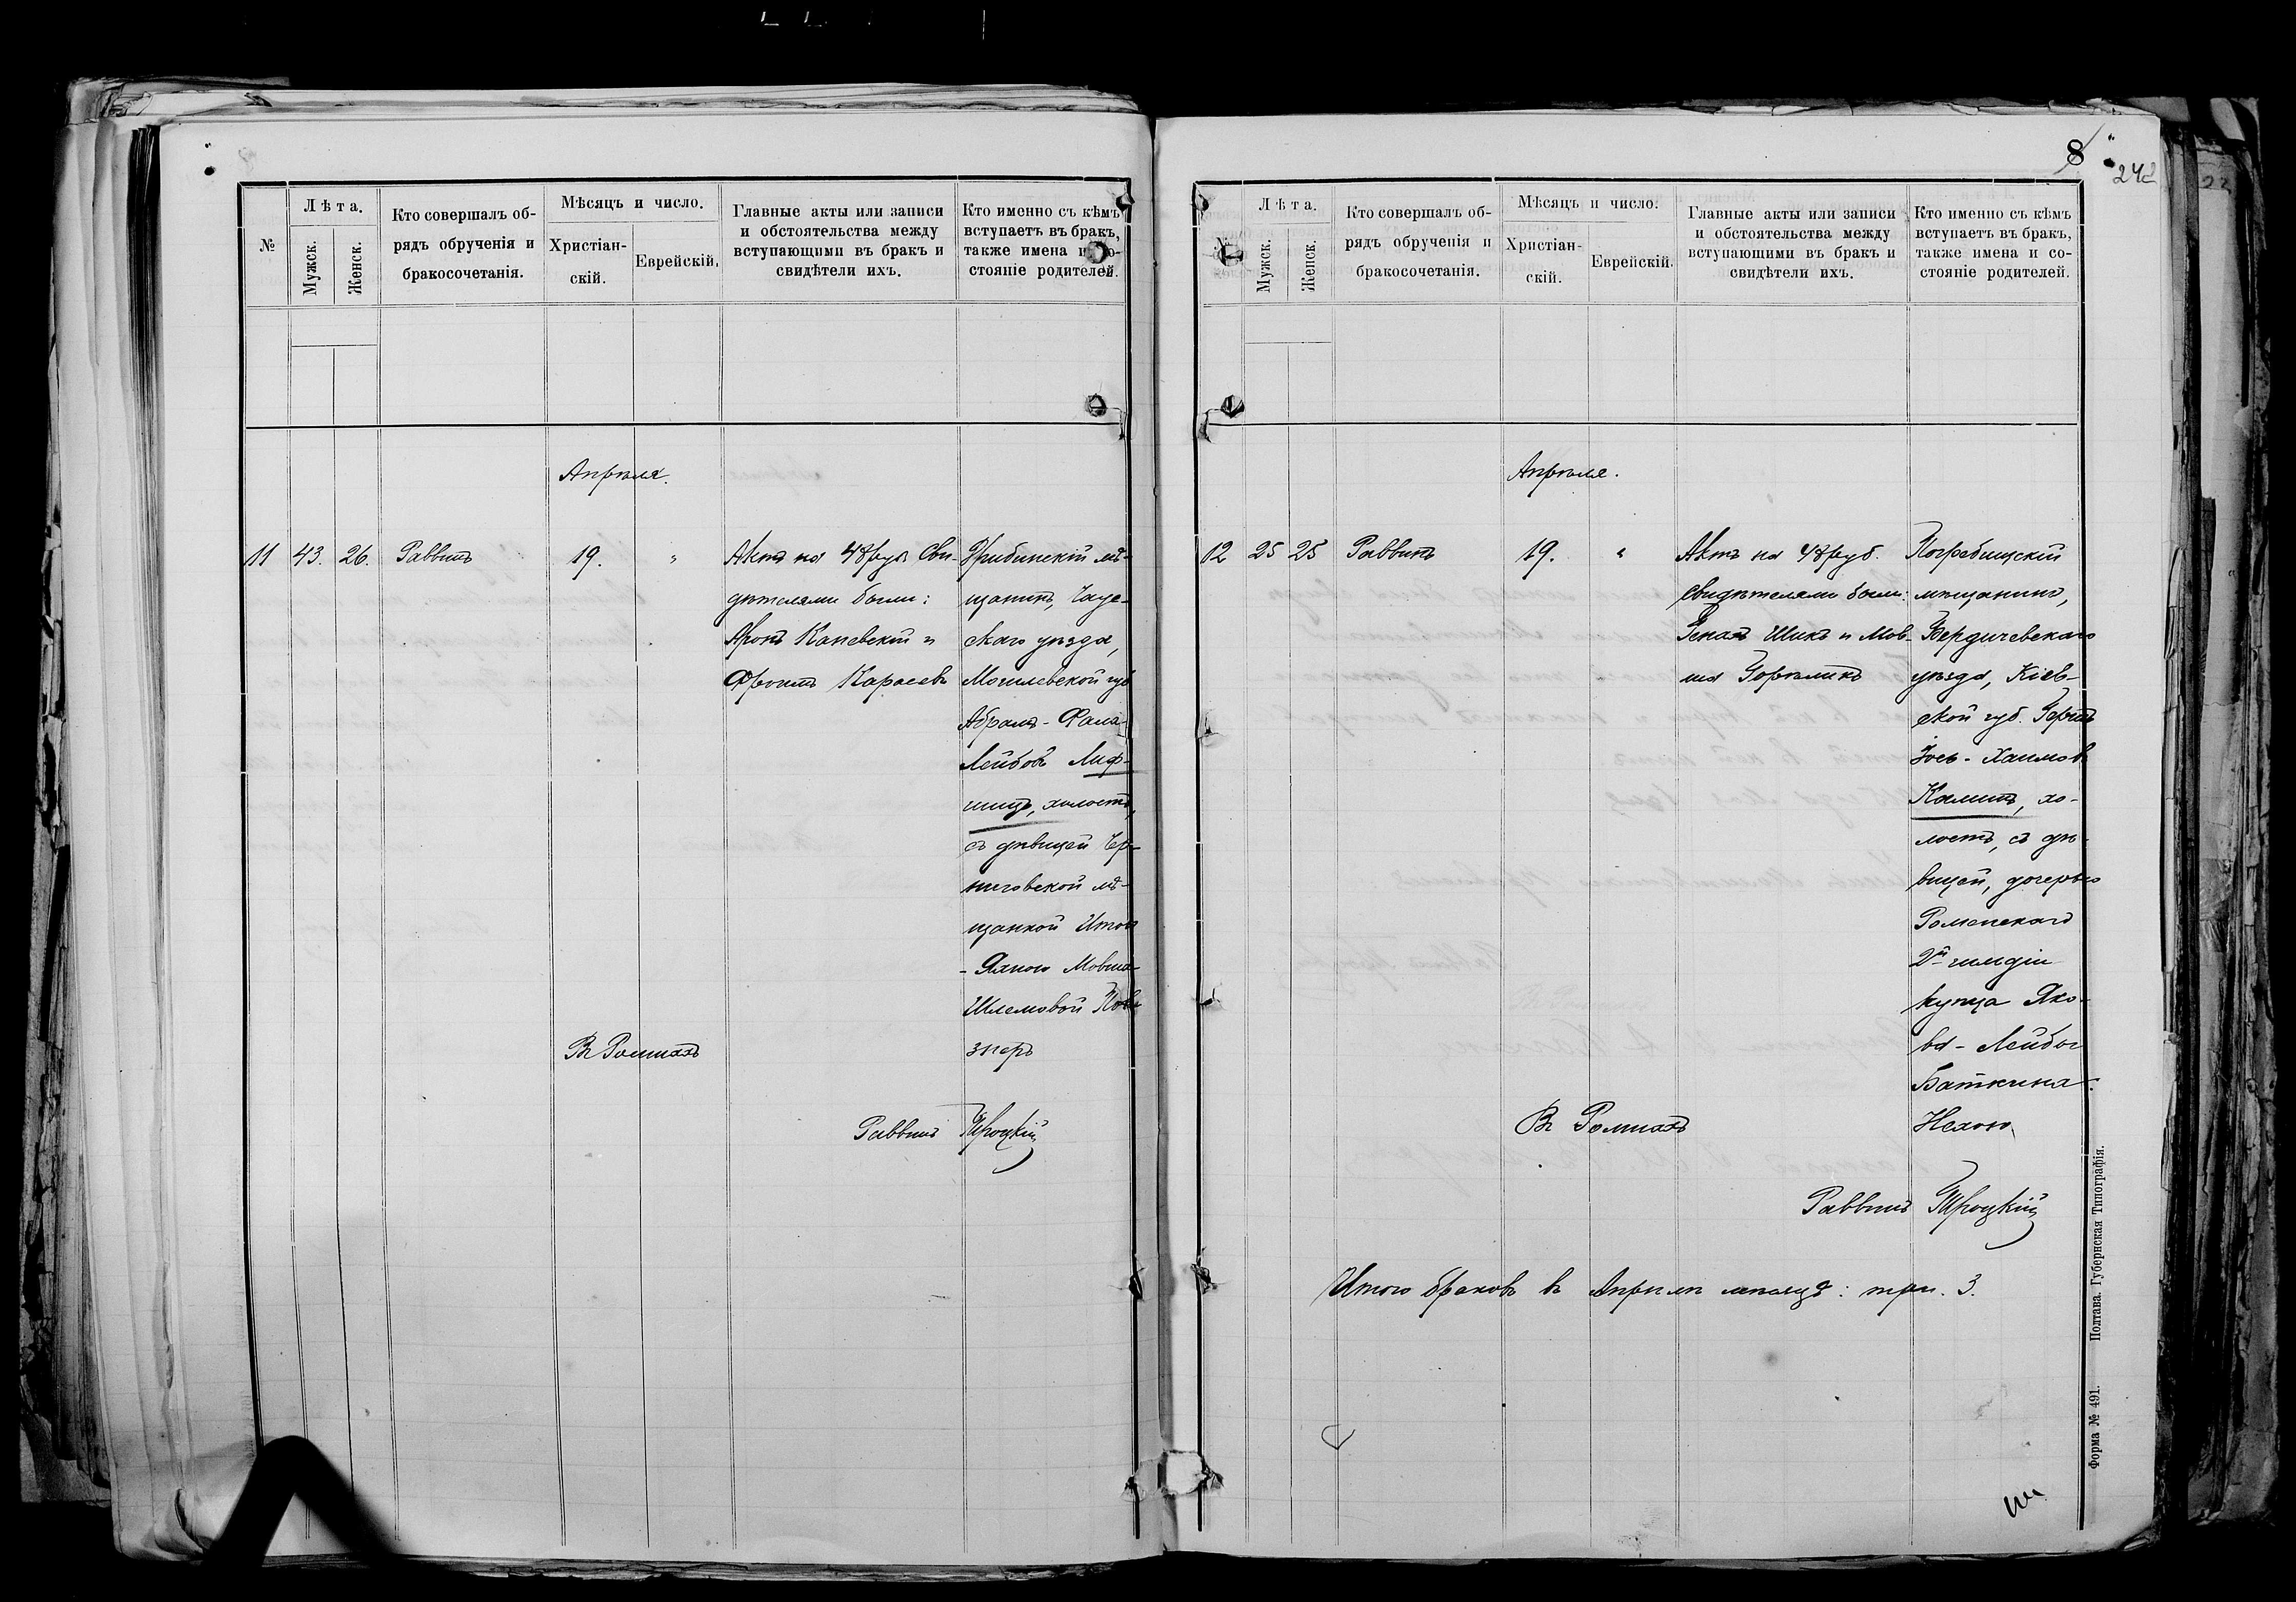 №
Лѣта.
Мужск.
Женск.
Кто совершалъ об-
рядъ обрученія и
бракосочетанія.
Мѣсяцъ и число.
Христіан-
скій.
Еврейскій.
Главные акты или записи
и обстоятельства между
вступающими въ бракъ и
свидѣтели ихъ.
Кто именно съ кѣмъ
вступаетъ въ бракъ,
также имена и со-
стояніе родителей.
Апрѣля.
11 43. 26. Раввинъ 19. "
Актъ на 48 руб. Сви-
дѣтелями были:
Аронъ Каневскій и
Фроимъ Карасевъ
Грибинскій мѣ-
щанинъ, Чаус-
скаго уѣзда,
Могилевской губ
Абрамъ-
Лейбовъ Лиф-
шицъ, холостъ,
съ дѣвицей Чер-
ниговской мѣ-
щанкой Итой
-Яхною Мовша-
Шлемовой Поз-
знеръ
Въ Ромнахъ
Раввинъ Троцкій
8
242
№
Лѣта.
Мужск.
Женск.
Кто совершалъ об-
рядъ обрученія и
бракосочетанія.
Мѣсяцъ и число.
Христіан-
скій.
Еврейскій.
Главные акты или записи
и обстоятельства между
вступающими въ бракъ и
свидѣтели ихъ.
Кто именно съ кѣмъ
вступаетъ въ бракъ,
также имена и со-
стояніе родителей.
Апрѣля.
12 25 25 Раввинъ 19. "
Актъ на 48 руб.
Свидѣтелями были:
Шикъ и Мов-
ша Горѣликъ
Погребищскій
мѣщанинъ,
Бердичевскаго
уѣзда, Кіев-
ской губ. Гершъ
Іось-Хаимовъ
Калишъ, хо-
лостъ, съ дѣ-
вицей, дочерью
Роменскаго
2й гильдіи
купца Яко-
ва-Лейбы
Баткина
Нехою
Въ Ромнахъ
Раввинъ Троцкій
Итого браковъ въ Апрѣлѣ мѣсяцѣ: три. 3.
Форма № 491. Полтава. Губернская Типографія.